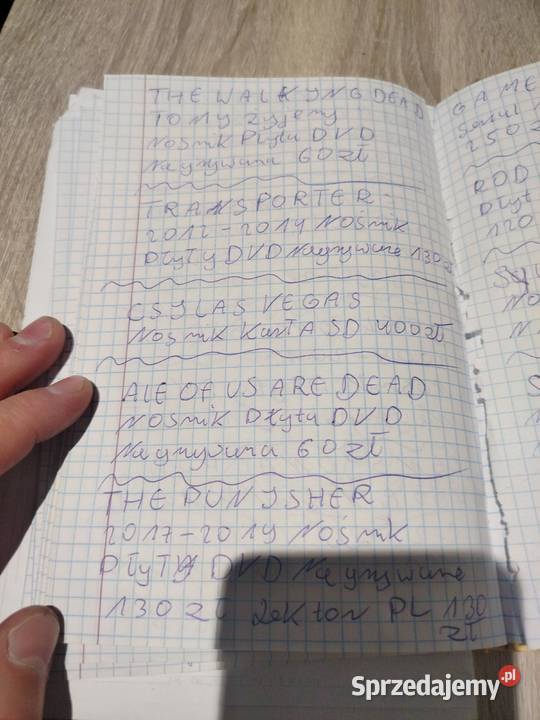 THE WALKYNG DEAD
TO MY żyJemy
NOŚnik Płyta DVD
Nagrywana 60 zł
TRANSPORTER
2012-2014 NOŚnik
PŁYTY DVD Nagrywane 130 zł
CSY LAS VEGAS
NOŚnik KartA SD 400zł
ALE OF US ARE DEAD
NOŚnik Płyta DVD
Nagrywana 60 zł
THE PUNYSHER
2017-2019 NOŚnik
PŁYTY DVD Nagrywane
130 zł Lektor PL 130
zł
GAME
Serial
250 z
ROD
Płyt
120
NO
N
S
Sprzedajemy.pl